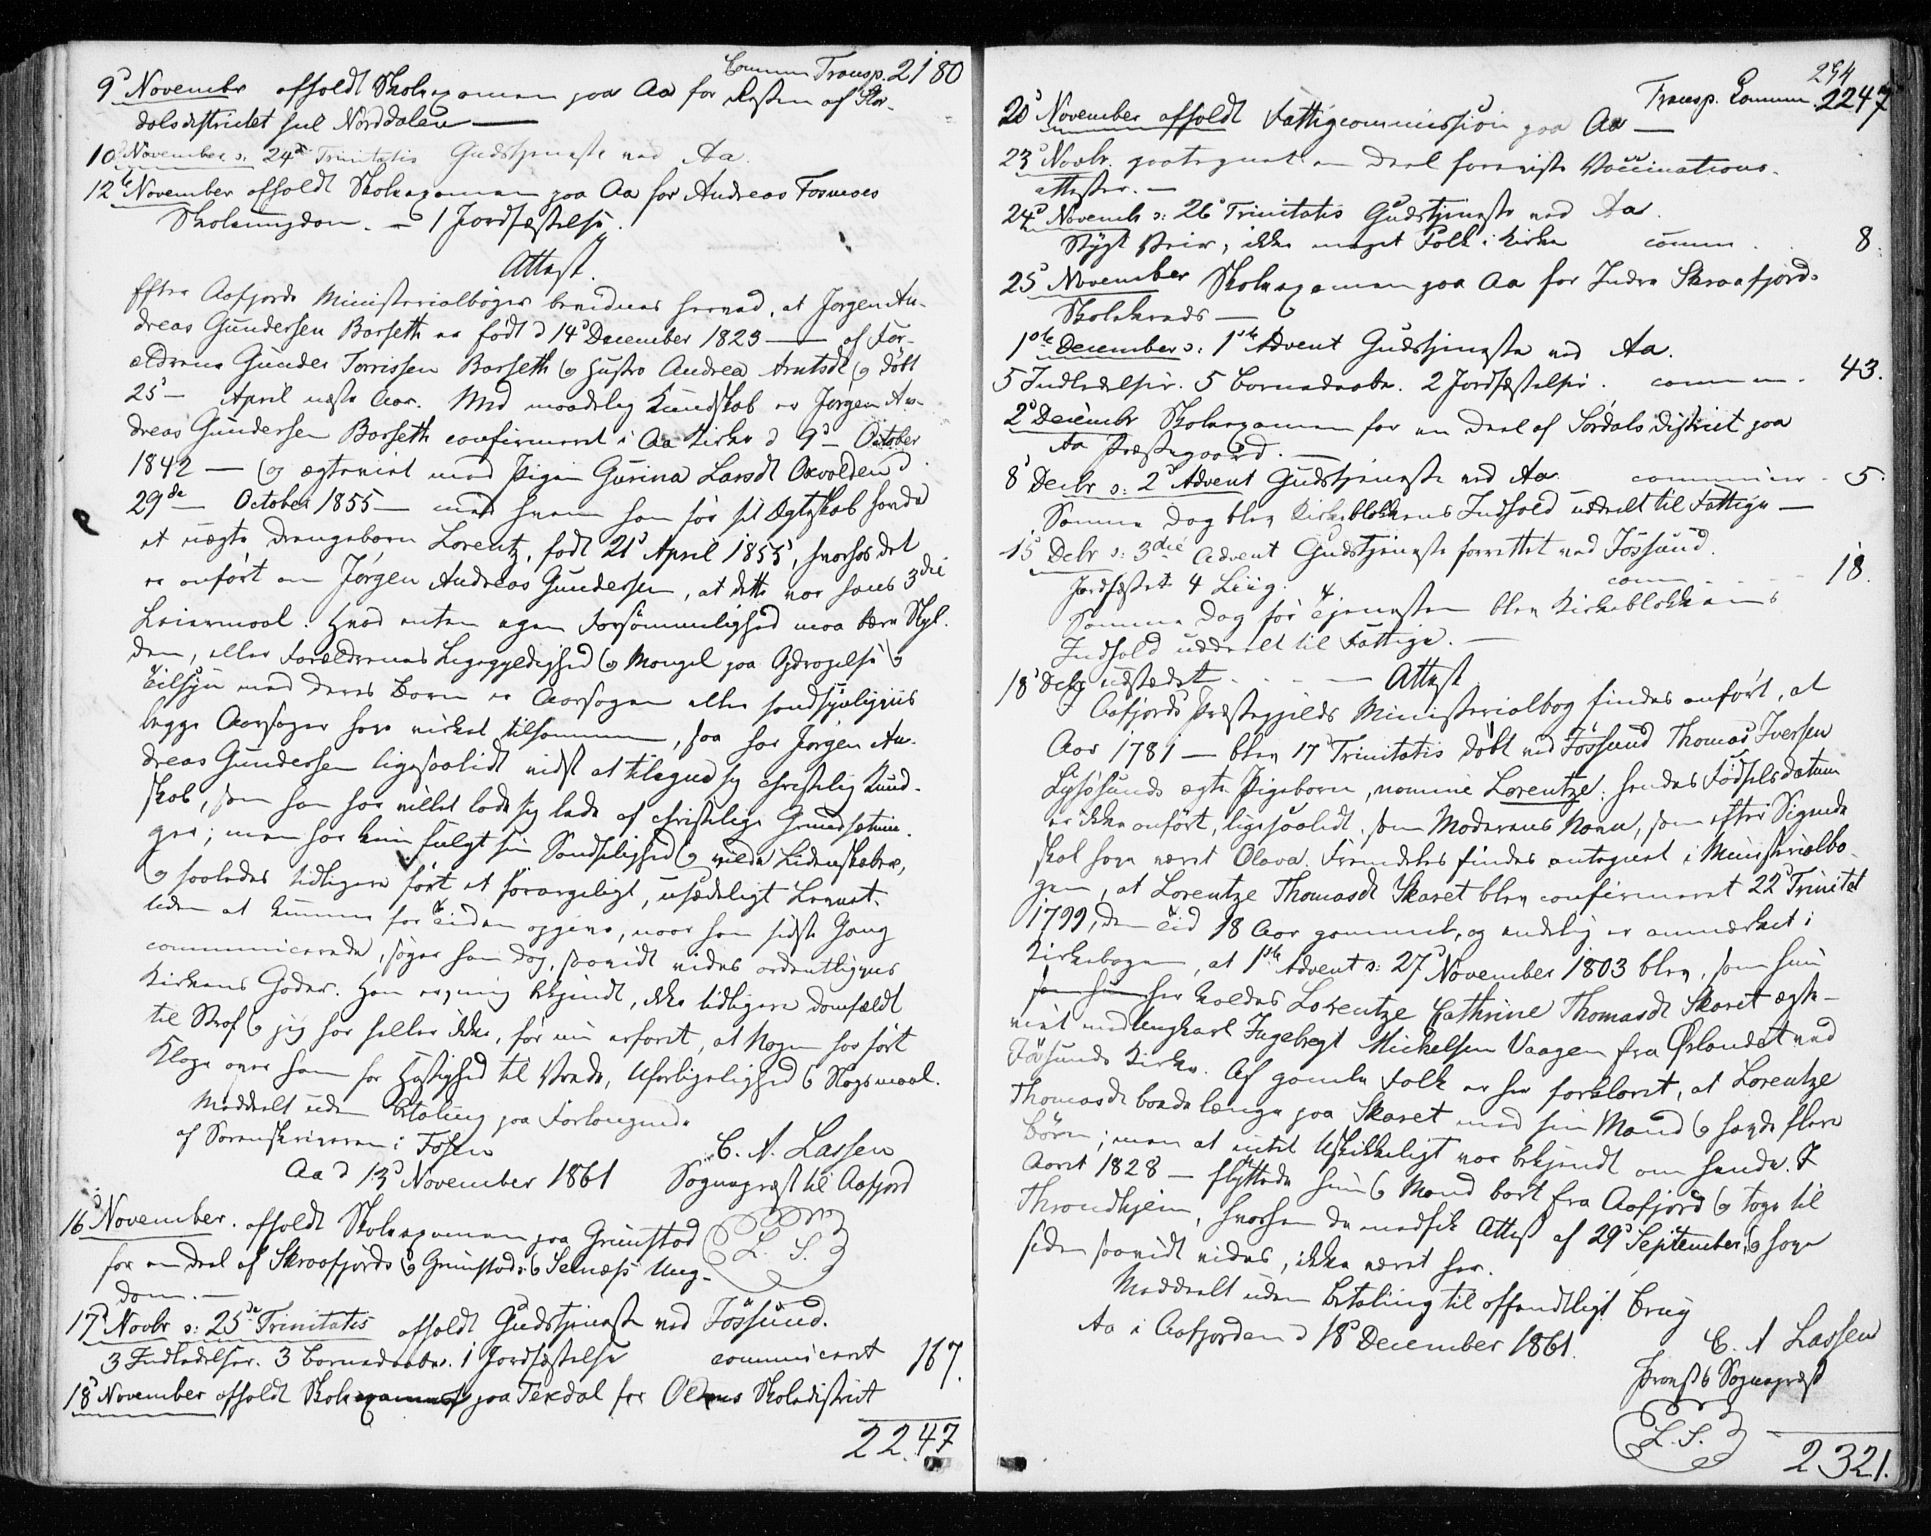 Commun Transp. 2180
9d November afholdt Skoleexamen paa Aa for Resten af Nor-
dalsdistrictet Norddalen —
10d November ɔ: 24de Trinitatis Gudstjeneste ved Aa.
12te November afholdt Skoleexamen paa Aa for Andreas Fosmoes
Skoleungdom. — 1 Jordfæstelse.
Attest.
Efter Aafjords Ministerialbøger bevidnes herved, at Jørgen An-
dreas Gundersen Barseth er født d 14d December 1823 — af For-
ældrene Gunder Torrissen Barseth og Hustro Andrea Arntsdt og døbt
25d — April næste Aar. Med maadelig Kundskab er Jørgen An-
dreas Gundersen Barseth confirmeret i Aa Kirke d 9d — October
1842 — og ægteviet med Pigen Gurina Larsdt Oxvolden d.
29de — October 1855 — med hvem han før sit Ægteskab havde
et uægte Drengebarn Lorentz, født 21d April 1855, hvorhos det
er anført om Jørgen Andreas Gundersen, at dette var hans 3die
Leiermaal. Hvad enten egen Forsømmelighed maa bære Skyl-
den, eller Forældrenes Ligegyldighed og Mangel paa Opdragelse og
Tilsyn med deres Børn er Aarsagen eller sandsynligviis
begge Aarsager have virket tilsammen, saa har Jørgen An-
dreas Gundersen ligesaalidt vidst at tilegne sig christelig Kund-
skab, som han har villet lade sig lede af christelige Grundsætnin-
ger; men har kun fulgt sin Sandselighed og vilde Lidenskaber,
og saaledes tidligere ført et forargeligt, usædeligt Levnet.
Uden at kunne for Tiden opgive, naar han sidste Gang
communicerede, søger han dog, saavidt vides ordentligviis
Kirkens Goder. Han er, mig bekjendt, ikke tidligere domfældt
til Straf og jeg har heller ikke, før nu erfaret, at Nogen har ført
Klage over ham for Hastighed til Vrede, Uforligelighed og Slagsmaal.
Meddeelt uden Betaling paa Forlangende
af Sorenskriveren i Fosen
Aa d 13d November 1861 C. A. Lassen
Sognepræst til Aafjord
L. S.
16d November. afholdt Skoleexamen paa Grimstad
for en Deel af Skraafjords og Grimstads og Selnæss Ung-
dom. —
17d Novbr ɔ: 25de Trinitatis afholdt Gudstjeneste ved Jøssund.
3 Indledelser. 3 Barnedaabe. 1 Jordfæstelse communiceret 167.
18d November afholdt Skoleexamen paa Texdal for Oldens Skoledistrict
2247
294
Transp. Commun 2247
20d November afholdt Fattigcommission paa Aa —
23d Novbr. paategnet en Deel foreviste Vaccinations-
attester. —
24d Novemb ɔ: 26d Trinitatis Gudstjeneste ved Aa.
Stygt Veir, ikke meget Folk i Kirke comm. . 8.
25d November Skoleexamen paa Aa for Indre Skraafjords
Skolekreds —
1ste December ɔ: 1ste Advent Gudstjeneste ved Aa.
5 Indledelser. 5 Barnedaabe. 2 Jordfæstelser. commun. 43.
2d Decembr Skoleexamen for en Deel af Sørdals District paa
Aa Præstegaard. —
8d Decbr ɔ: 2d Advent Gudstjeneste ved Aa communic. 5.
Samme Dag blev Kirkeblokkens Indhold uddeelt til Fattige —
15d Decbr ɔ: 3die Advent Gudstjeneste forrettet ved Jøssund.
Jordfæstet 4 Liig. comm - - - 18.
Samme Dag før Tjenesten blev Kirkeblokkens
Indhold uddeelt til Fattige. —
18d Decbr udstædet - - - — Attest
I Aafjords Præstegjelds Ministerialbog findes anført, at
Aar 1781 — blev 17d Trinitatis døbt ved Jøssund Thomas Iversen
Lysøsunds ægte Pigebarn, nomine Lorentze: hendes Fødselsdatum
er ikke anført, ligesaalidt som Moderens Navn, som efter Sigende
skal have været Olava. Fremdeles findes antegnet i Ministerialbo-
gen, at Lorentze Thomasdt Skaret blev confirmeret 22d Trinitat
1799, den Tid 18 Aar gammel, og endelig er anmærket i
Kirkebogen, at 1ste Advent ɔ: 27d November 1803 blev, som hun
som hun her kaldes Lorentze Cathrine Thomasdt Skaret ægte-
viet med Ungkarl Ingebregt Mickelsen Vaagen fra Ørlandet ved
Jøssunds Kirke. Af gamle Folk er her forklaret, at Lorentze
Thomasdt boede længe paa Skaret med sin Mand og havde flere
Børn; men at intet Uskikkeligt var bekjendt om hende. I
Aaret 1828 — flyttede hun og Mand bort fra Aafjord og toge til
Throndhjem, hvorhen de medfik Attest af 29d September, og have
siden saavidt vides, ikke været her.
Meddeelt uden Betaling til offentligt Brug
Aa i Aafjorden d 18d December 1861.
C. A Lassen
Provst og Sognepræst
L. S.
2321.